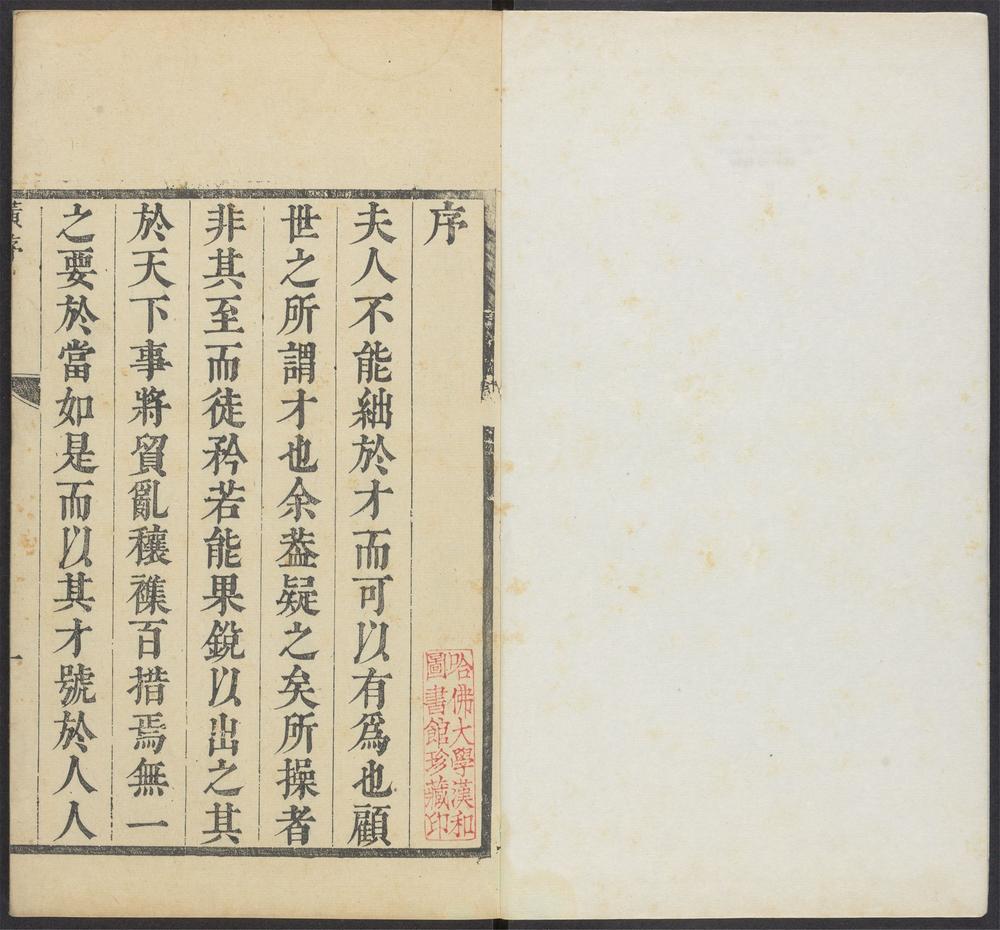 序
夫人不能絀於才而可以有爲也顧
世之所謂才也余葢疑之矣所操者
非其至而徒矜若能果銳以出之其
於天下事將貿亂穰襍百措焉無一
之要於當如是而以其才號於人人
哈佛大學漢和
圖書館珍藏印
序
一